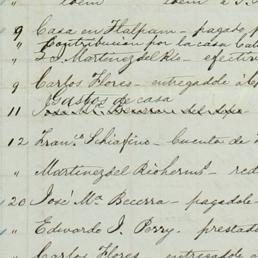 9 Casa en Tlalpam - pagado p
" Contribucion por la casa Call
" J. S. Martinez del Rio - efectiv
9 Carlos Flores - entregadole á C
Gastos de casa
11
12 Franco. Schiafino - Cuenta de
" Martinez del Rio hermos. - red
20 José Ma. Becerra - pagadole
" Edwardo J. Perry - prestad
" Carlos Flores - entregadole á